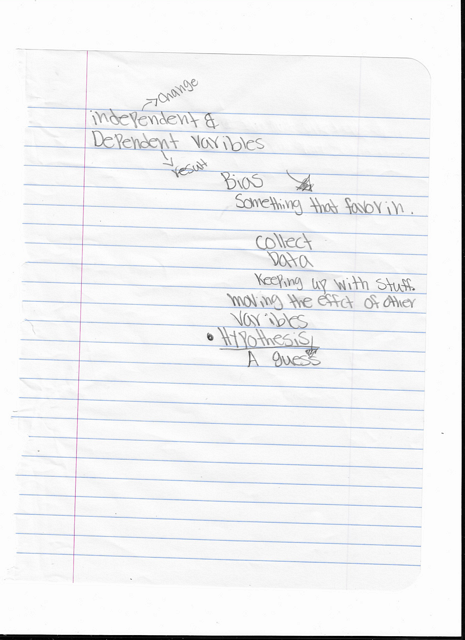 change
independent &
Dependent varibles
result
Bias
Something that favor in.
collect
Data
Keeping up with stuff.
moving the effct of other
varibles
• Hypothesis
A guess